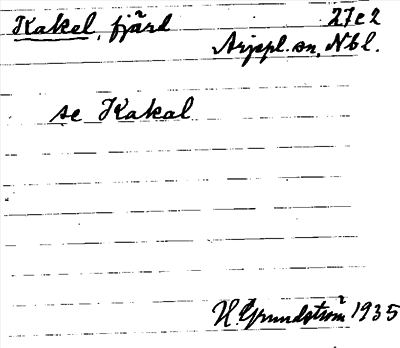 Kakel, fjärd 27c2
Arjepl. sn, Nbl.
se Kakal
H. Grundström 1935